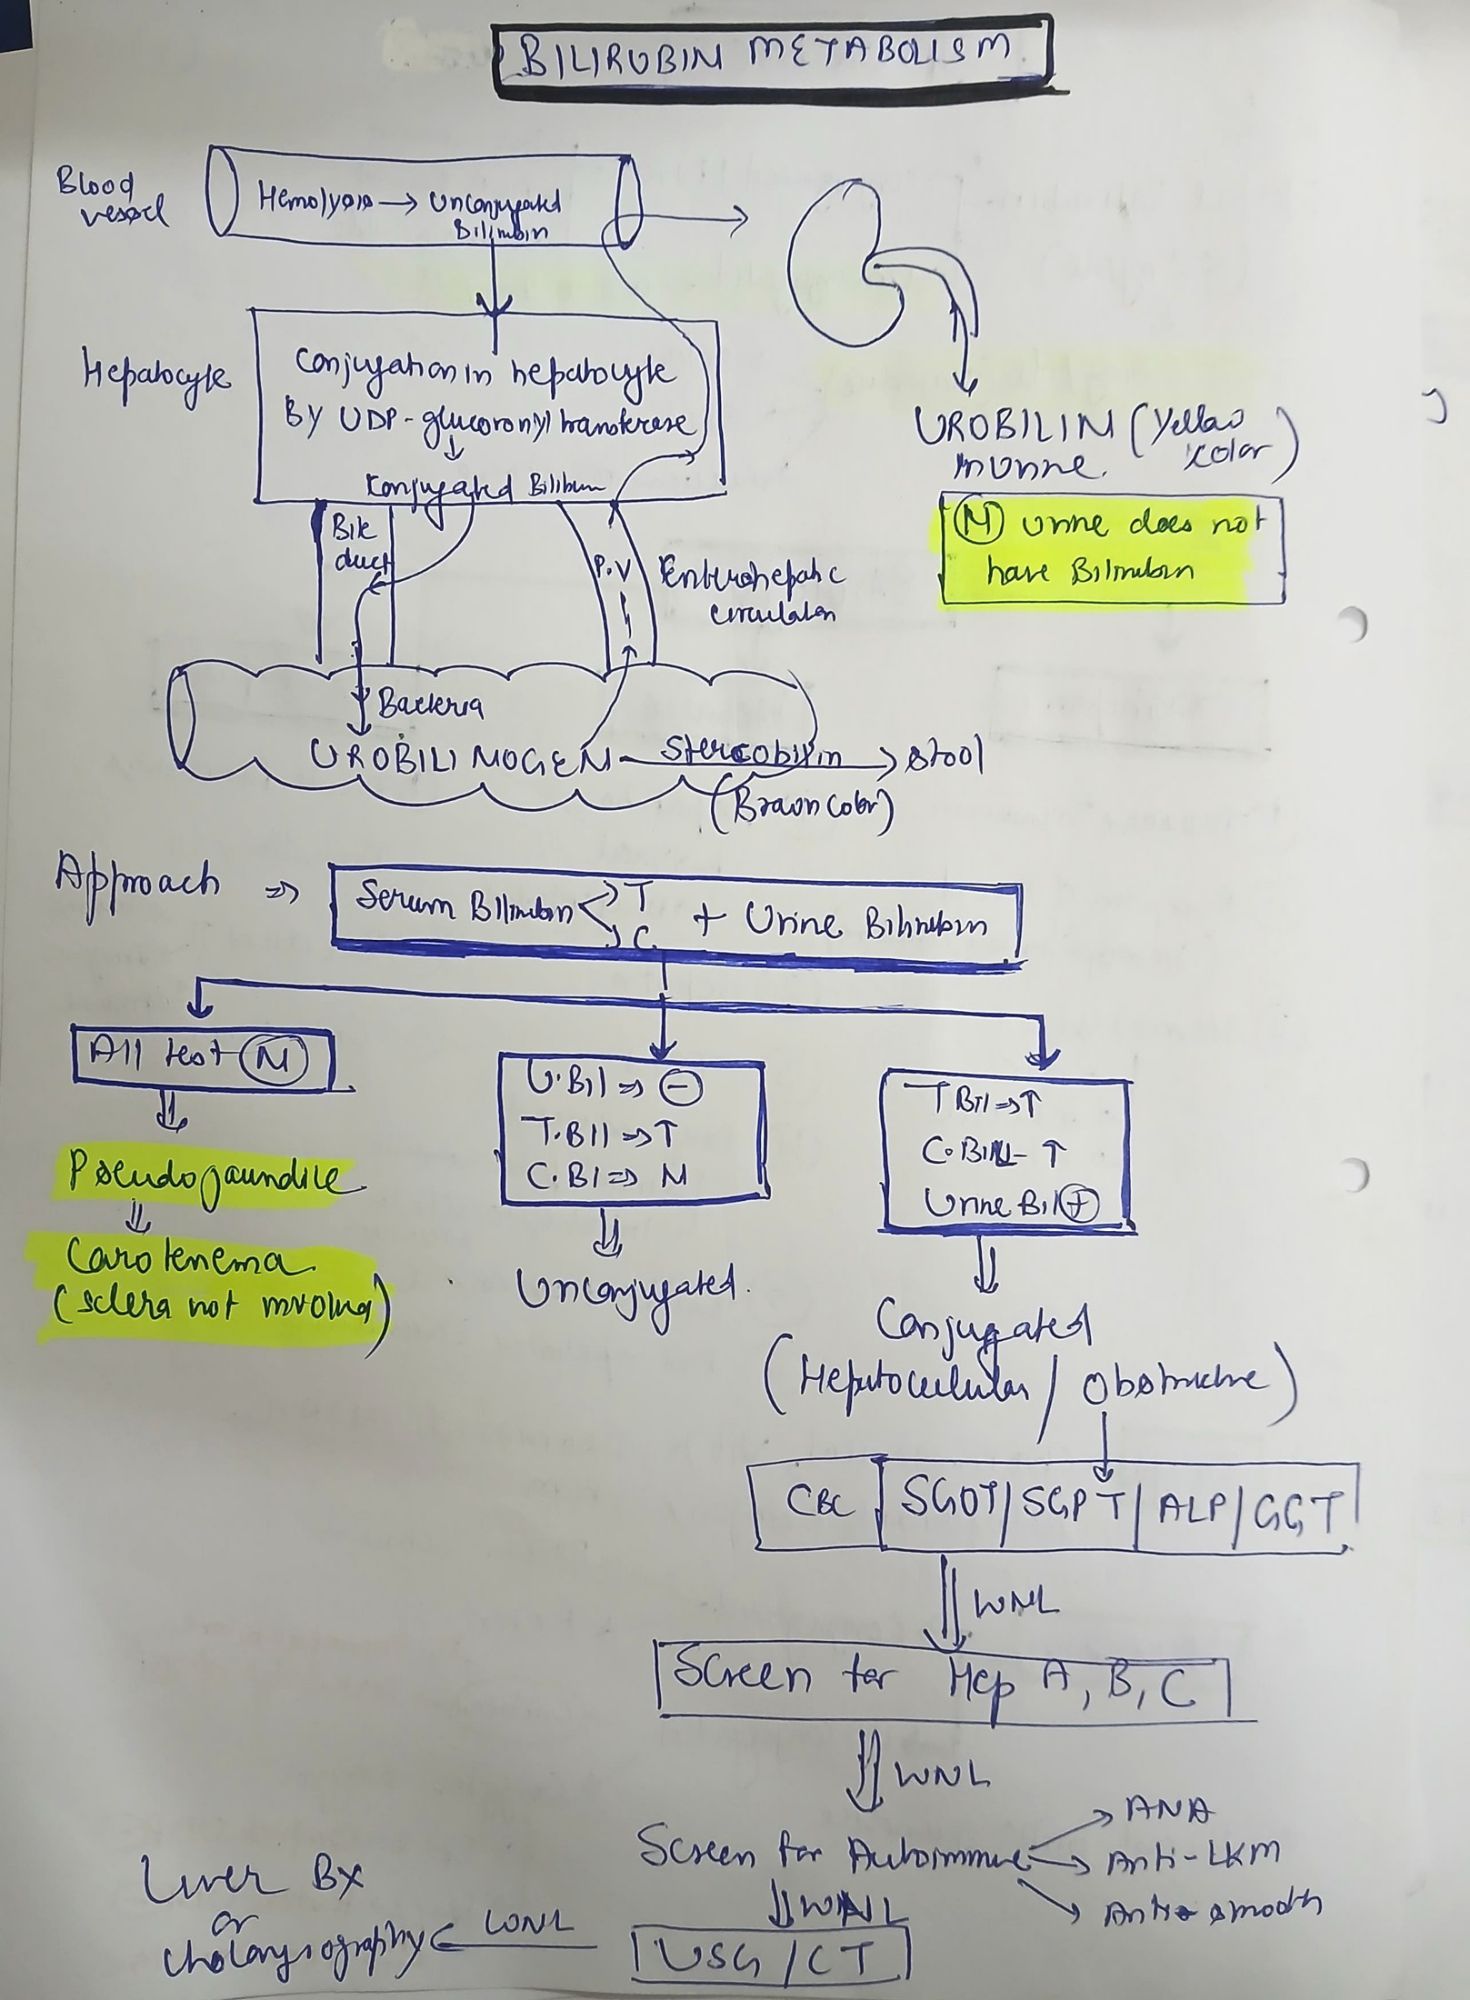 BILIRUBIN METABOLISM
Blood
vessel
Hemolysis → Unconjugated
Bilirubin
Hepatocyte
Conjugation in hepatocyte
By UDP-glucoronyl transferase
↓
Conjugated Bilibun
UROBILIN (Yellow
in urine. color)
(N) urine does not
have Bilirubin
Bile
duct
P.V
Enterohepatic
circulation
Bacteria
UROBILINOGEN - Stercobilin → Stool
(Brown color)
Approach ⇒
Serum Bilirubin < T + Urine Bilirubin
C
All test (N)
Pseudojaundice
Carotenema
(sclera not involved)
U.Bil ⇒ (-)
T.Bil ⇒ ↑
C.Bi ⇒ N
Unconjugated.
T Bil ⇒ ↑
C.Bil - ↑
Urine Bil (+)
Conjugated
(Hepatocellular / Obstructive)
CBC | SGOT / SGPT / ALP / GGT
WNL
Screen for Hep A, B, C
WNL
Screen for Autoimmune
ANA
Anti-LKM
Anti-smooth
WNL
USG / CT
WNL
Liver Bx
or